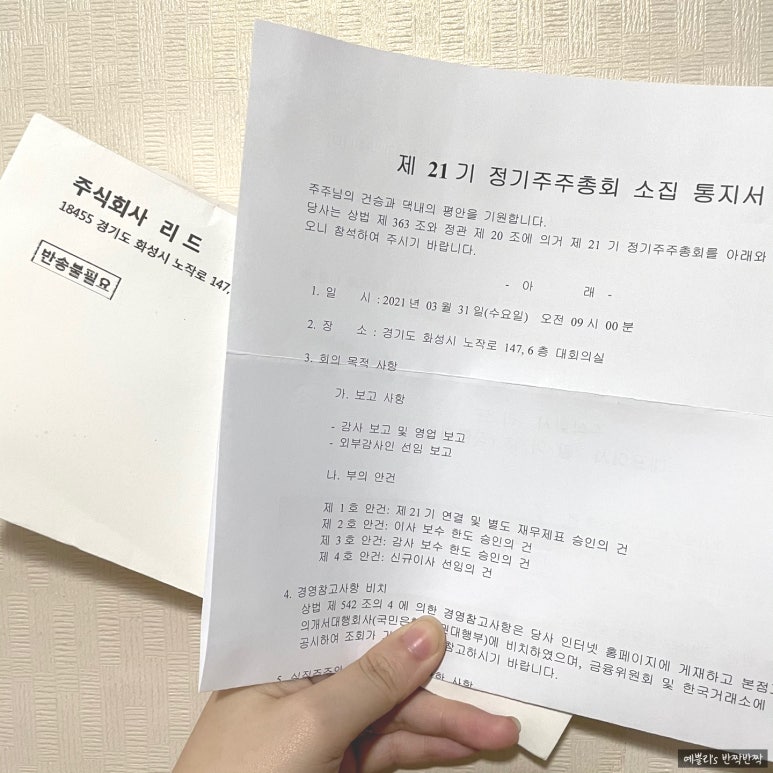 주식회사 리드
18455 경기도 화성시 노작로 147,
반송불필요
제 21 기 정기주주총회 소집 통지서
주주님의 건승과 댁내의 평안을 기원합니다.
당사는 상법 제 363 조와 정관 제 20 조에 의거 제 21 기 정기주주총회를 아래와
오니 참석하여 주시기 바랍니다.
- 아 래 -
1. 일 시 : 2021 년 03 월 31 일(수요일) 오전 09 시 00 분
2. 장 소 : 경기도 화성시 노작로 147, 6 층 대회의실
3. 회의 목적 사항
가. 보고 사항
- 감사 보고 및 영업 보고
- 외부감사인 선임 보고
나. 부의 안건
제 1 호 안건: 제 21 기 연결 및 별도 재무제표 승인의 건
제 2 호 안건: 이사 보수 한도 승인의 건
제 3 호 안건: 감사 보수 한도 승인의 건
제 4 호 안건: 신규이사 선임의 건
4. 경영참고사항 비치
상법 제 542 조의 4 에 의한 경영참고사항은 당사 인터넷 홈페이지에 게재하고 본점과
의개서대행회사(국민은행 대행부)에 비치하였으며, 금융위원회 및 한국거래소에
공시하여 조회가 참고하시기 바랍니다.
5. 사항
예쁠리's 반짝반짝